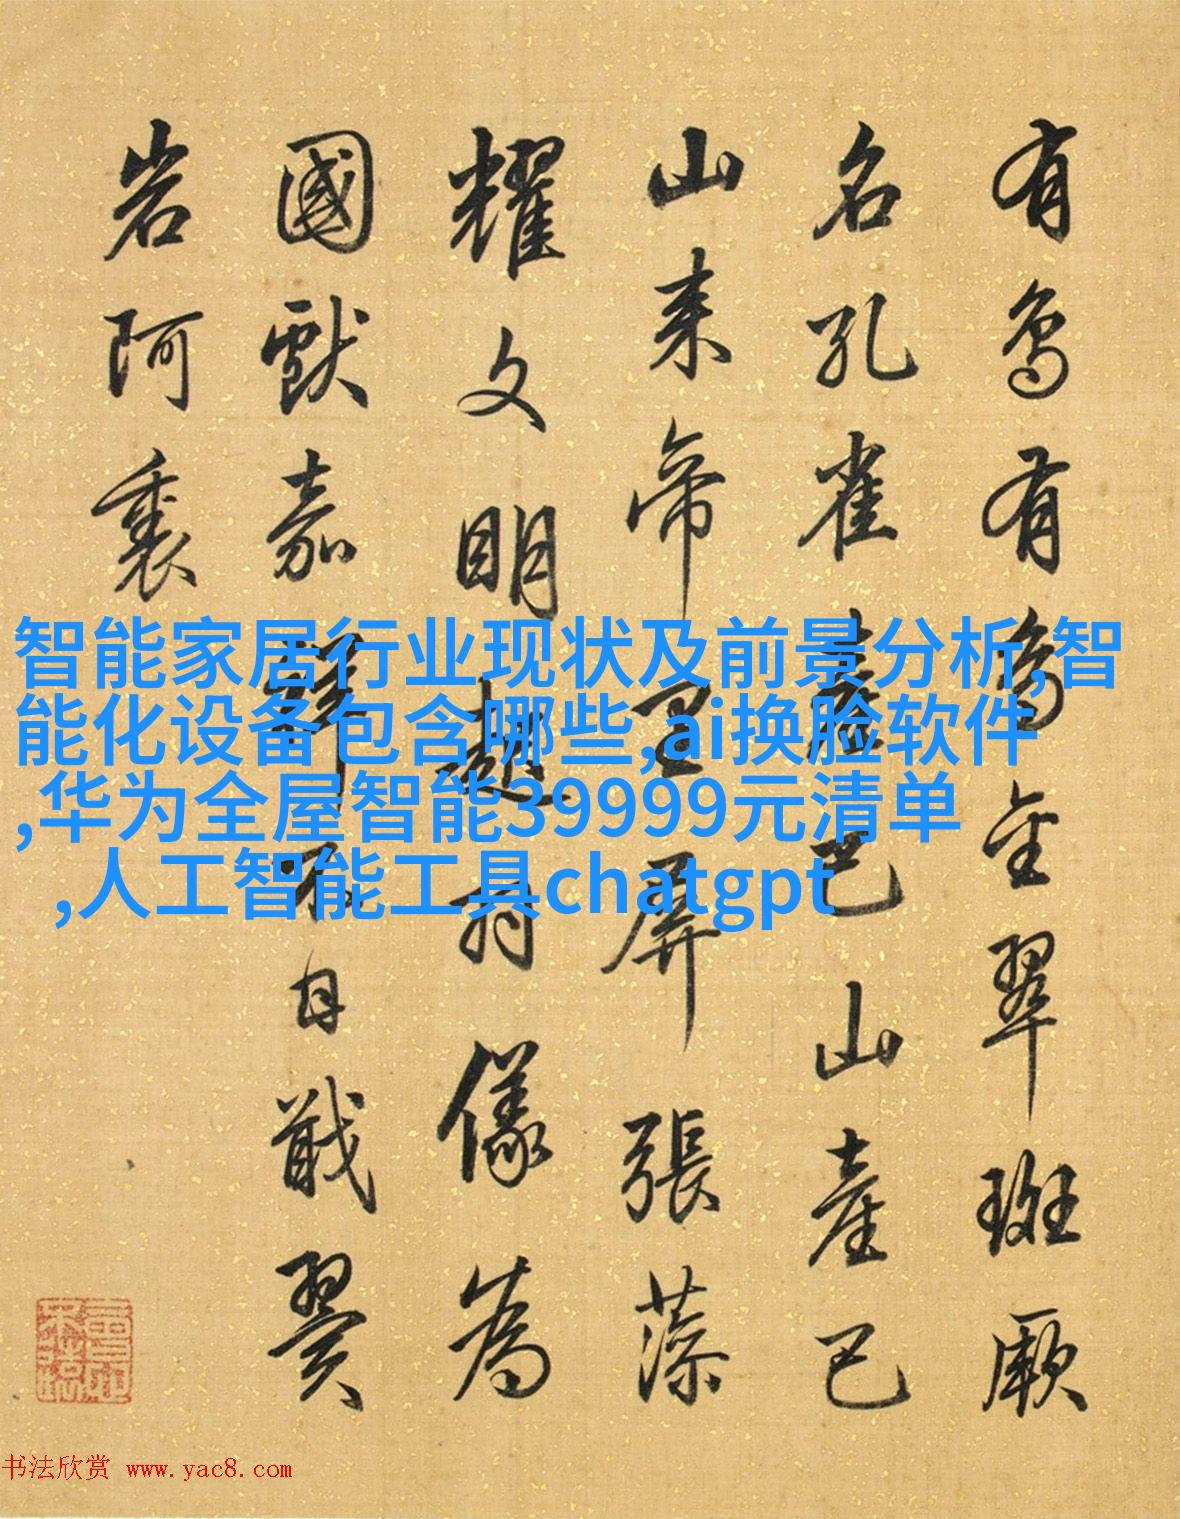 有鳥有鳥金翠斑厥
名孔雀巴山產巴
山来帝里屏張藻
耀文明羽儀為
國獻嘉祥不日戢翼
岩阿裏
智能家居行业现状及前景分析,智
能化设备包含哪些,ai换脸软件
,华为全屋智能39999元清单
,人工智能工具chatgpt
书法欣赏 www.yac8.com